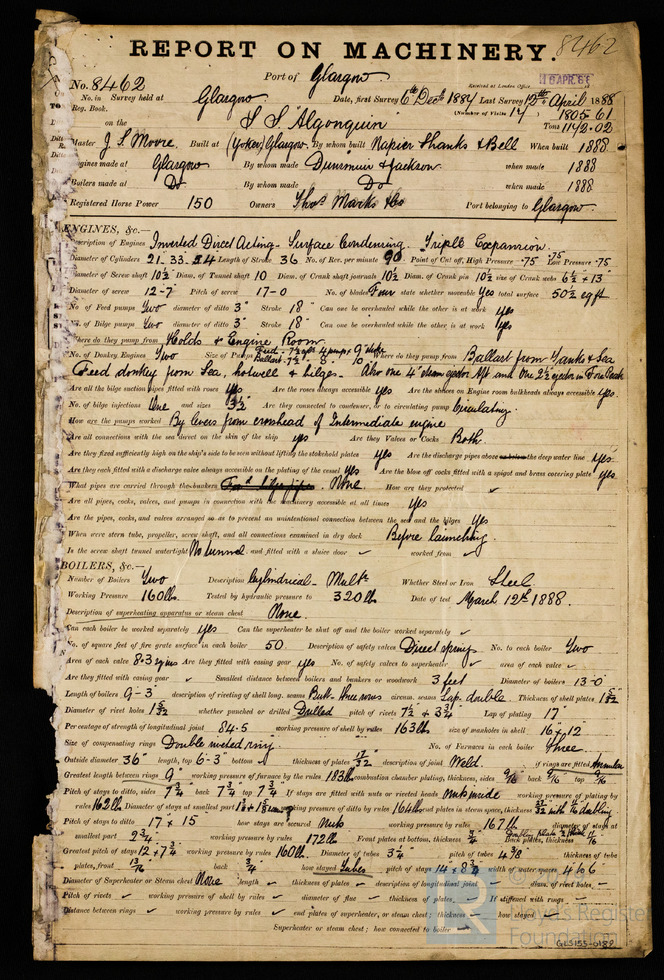 REPORT ON MACHINERY. 8462
Port of Glasgow
No. 8462 Received at London Office 16 APR 88
No. in Survey held at Glasgow Date, first Survey 6th Decr 1887 Last Survey 12th April 1888
Reg. Book. (Number of Visits 14)
on the S S "Algonquin" Tons 1805.61 1192.02
Master J. S. Moore Built at (Yoker) Glasgow By whom built Napier Shanks & Bell When built 1888
Engines made at Glasgow By whom made Dunsmuir & Jackson when made 1888
Boilers made at Do By whom made Do when made 1888
Registered Horse Power 150 Owners Thos Marks & Co Port belonging to Glasgow
ENGINES, &c.—
Description of Engines Inverted Direct Acting - Surface Condensing. Triple Expansion.
Diameter of Cylinders 21. 33. 54 Length of Stroke 36 No. of Rev. per minute 90 Point of Cut off, High Pressure .75 Low Pressure .75
Diameter of Screw shaft 10½ Diam. of Tunnel shaft 10 Diam. of Crank shaft journals 10½ Diam. of Crank pin 10½ size of Crank webs 6½ × 13
Diameter of screw 12-7 Pitch of screw 17-0 No. of blades Four state whether moveable Yes total surface 50½ sq ft
No. of Feed pumps Two diameter of ditto 3" Stroke 18" Can one be overhauled while the other is at work yes
No. of Bilge pumps Two diameter of ditto 3" Stroke 18" Can one be overhauled while the other is at work yes
Where do they pump from Holds & Engine Room
No. of Donkey Engines Two Size of Pumps Where do they pump from Ballast from Tanks & Sea
Feed donkey from Sea, hotwell & bilges - Also one 4" steam ejector Aft and One 2½ ejector in Fore Peak
Are all the bilge suction pipes fitted with roses yes Are the roses always accessible yes Are the sluices on Engine room bulkheads always accessible yes
No. of bilge injections One and sizes 3½ Are they connected to condenser, or to circulating pump Circulating.
How are the pumps worked By levers from crosshead of Intermediate engine
Are all connections with the sea direct on the skin of the ship yes Are they Valves or Cocks Both.
Are they fixed sufficiently high on the ship's side to be seen without lifting the stokehold plates yes Are the discharge pipes above or below the deep water line yes
Are they each fitted with a discharge valve always accessible on the plating of the vessel yes Are the blow off cocks fitted with a spigot and brass covering plate yes
What pipes are carried through the bunkers None How are they protected ✓
Are all pipes, cocks, valves, and pumps in connection with the machinery accessible at all times Yes
Are the pipes, cocks, and valves arranged so as to prevent an unintentional connection between the sea and the bilges Yes
When were stern tube, propeller, screw shaft, and all connections examined in dry dock Before launching.
Is the screw shaft tunnel watertight No tunnel and fitted with a sluice door ✓ worked from ✓
BOILERS, &c.—
Number of Boilers Two Description Cylindrical - Multr Whether Steel or Iron Steel
Working Pressure 160lb Tested by hydraulic pressure to 320lb Date of test March 12th 1888.
Description of superheating apparatus or steam chest None.
Can each boiler be worked separately yes Can the superheater be shut off and the boiler worked separately ✓
No. of square feet of fire grate surface in each boiler 50 Description of safety valves Direct spring No. to each boiler Two
Area of each valve 8.3 sq ins Are they fitted with easing gear yes No. of safety valves to superheater ✓ area of each valve ✓
Are they fitted with easing gear ✓ Smallest distance between boilers and bunkers or woodwork 3 feet Diameter of boilers 13-0
Length of boilers 9-3 description of riveting of shell long. seams Butt. three rows circum. seams Lap. double. Thickness of shell plates 1 5/32
Diameter of rivet holes 1 5/32 whether punched or drilled Drilled pitch of rivets 7½ + 3¾ Lap of plating 17"
Percentage of strength of longitudinal joint 84.5 working pressure of shell by rules 163lb size of manholes in shell 16 × 12
Size of compensating rings Double riveted ring No. of Furnaces in each boiler Three.
Outside diameter 36" length, top 6-3 bottom ✓ thickness of plates 17/32 description of joint Weld. if rings are fitted
Greatest length between rings 9" working pressure of furnace by the rules 183lb combustion chamber plating, thickness, sides 9/16 back 9/16 top 9/16
Pitch of stays to ditto, sides 7¾ back 7¾ top 7¾ If stays are fitted with nuts or riveted heads nuts inside working pressure of plating by
rules 162lb Diameter of stays at smallest part working pressure of ditto by rules 164lb end plates in steam space, thickness
Pitch of stays to ditto 17 × 15 how stays are secured Nuts working pressure by rules 167lb diameter of stays at
smallest part 2¾ working pressure by rules 172lb Front plates at bottom, thickness ¾ Back plates, thickness 11/16
Greatest pitch of stays 12 × 7¾ working pressure by rules 160lb. Diameter of tubes 3¼ pitch of tubes thickness of tube
plates, front 13/16 back ¾ how stayed Tubes pitch of stays width of water spaces
Diameter of Superheater or Steam chest None length ✓ thickness of plates ✓ description of longitudinal joint ✓ diam. of rivet holes ✓
Pitch of rivets ✓ working pressure of shell by rules ✓ diameter of flue ✓ thickness of plates ✓ If stiffened with rings ✓
Distance between rings ✓ working pressure by rules ✓ end plates of superheater, or steam chest; thickness ✓ how stayed
Superheater or steam chest; how connected to boiler ✓
© Lloyd's Register Foundation
GLS155-0189